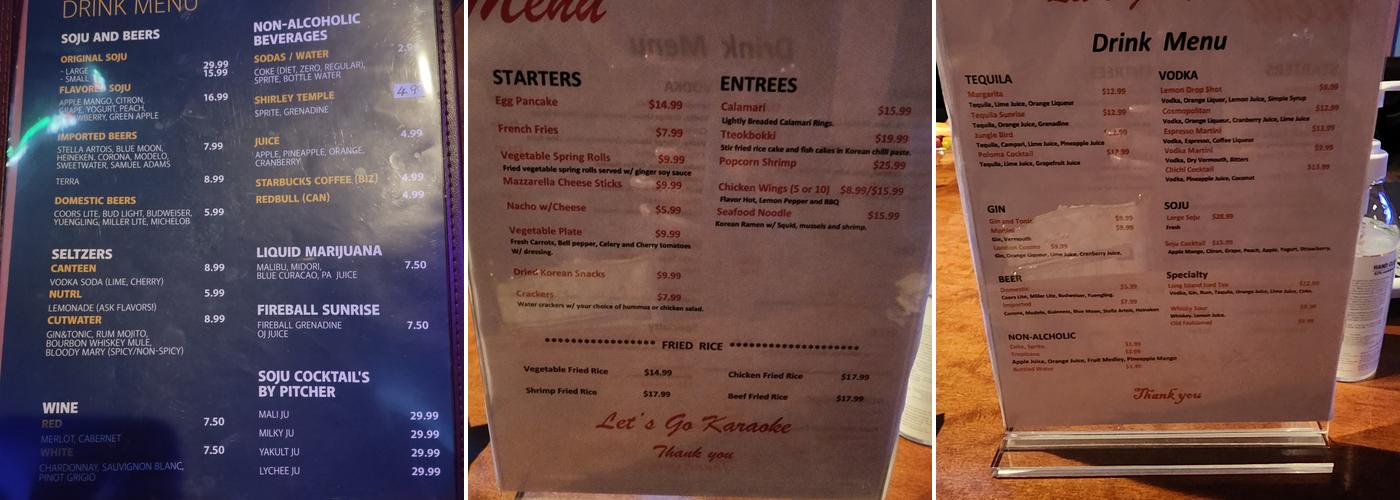 DRINK MENU
SOJU AND BEERS
ORIGINAL SOJU
- LARGE 29.99
- SMALL 15.99
FLAVORED SOJU
APPLE MANGO, CITRON, 16.99
GRAPE, YOGURT, PEACH,
STRAWBERRY, GREEN APPLE
IMPORTED BEERS
STELLA ARTOIS, BLUE MOON, 7.99
HEINEKEN, CORONA, MODELO,
SWEETWATER, SAMUEL ADAMS
TERRA 8.99
DOMESTIC BEERS
COORS LITE, BUD LIGHT, BUDWEISER, 5.99
YUENGLING, MILLER LITE, MICHELOB
SELTZERS
CANTEEN 8.99
VODKA SODA (LIME, CHERRY)
NUTRL 5.99
LEMONADE (ASK FLAVORS!)
CUTWATER 8.99
GIN&TONIC, RUM MOJITO,
BOURBON WHISKEY MULE,
BLOODY MARY (SPICY/NON-SPICY)
WINE
RED 7.50
MERLOT, CABERNET
WHITE 7.50
CHARDONNAY, SAUVIGNON BLANC,
PINOT GRIGIO
NON-ALCOHOLIC
BEVERAGES
SODAS / WATER 2.99
COKE (DIET, ZERO, REGULAR),
SPRITE, BOTTLE WATER
SHIRLEY TEMPLE 4.99
SPRITE, GRENADINE
JUICE 4.99
APPLE, PINEAPPLE, ORANGE,
CRANBERRY
STARBUCKS COFFEE (BIZ) 4.99
REDBULL (CAN) 4.99
LIQUID MARIJUANA
MALIBU, MIDORI, 7.50
BLUE CURACAO, PA JUICE
FIREBALL SUNRISE
FIREBALL GRENADINE 7.50
OJ JUICE
SOJU COCKTAIL'S
BY PITCHER
MALI JU 29.99
MILKY JU 29.99
YAKULT JU 29.99
LYCHEE JU 29.99
Menu
STARTERS
Egg Pancake $14.99
French Fries $7.99
Vegetable Spring Rolls $9.99
Fried vegetable spring rolls served w/ ginger soy sauce
Mazzarella Cheese Sticks $9.99
Nacho w/Cheese $5.99
Vegetable Plate $9.99
Fresh Carrots, Bell pepper, Celery and Cherry tomatoes
W/ dressing.
Dried Korean Snacks $9.99
Crackers $7.99
Water crackers w/ your choice of hummus or chicken salad.
ENTREES
Calamari $15.99
Lightly Breaded Calamari Rings.
Tteokbokki $19.99
Stir fried rice cake and fish cakes in Korean chilli paste.
Popcorn Shrimp $25.99
Chicken Wings (5 or 10) $8.99/$15.99
Flavor Hot, Lemon Pepper and BBQ
Seafood Noodle $15.99
Korean Ramen w/ Squid, mussels and shrimp.
FRIED RICE
Vegetable Fried Rice $14.99 Chicken Fried Rice $17.99
Shrimp Fried Rice $17.99 Beef Fried Rice $17.99
Let's Go Karaoke
Thank you
Drink Menu
TEQUILA
Margarita $12.99
Tequila, Lime Juice, Orange Liqueur
Tequila Sunrise $12.99
Tequila, Orange Juice, Grenadine
Jungle Bird
Tequila, Campari, Lime Juice, Pineapple Juice
Paloma Cocktail
Tequila, Lime Juice, Grapefruit Juice
GIN
Gin and Tonic $9.99
Martini $9.99
Gin, Vermouth
London Cosmo $9.99
Gin, Orange Liqueur, Cranberry Juice, Lime Juice.
BEER
Domestic $5.99
Coors Lite, Miller Lite, Budweiser, Yuengling.
Imported $7.99
Corona, Modelo, Guinness, Blue Moon, Stella Artois, Heineken
NON-ALCHOLIC
Coke, Sprite.
Tropicana
Apple Juice, Orange Juice, Fruit Medley, Pineapple Mango
Bottled Water
VODKA
Lemon Drop Shot $9.99
Vodka, Orange Liquor, Lemon Juice, Simple Syrup
Cosmopolitan $12.99
Vodka, Orange Liqueur, Cranberry Juice, Lime Juice
Espresso Martini $13.99
Vodka, Espresso, Coffee Liqueur
Vodka Martini $9.99
Vodka, Dry Vermouth, Bitters
Chichi Cocktail $13.99
Vodka, Pineapple Juice, Coconut
SOJU
Large Soju $28.99
Fresh
Soju Cocktail $15.99
Apple Mango, Citron, Grape, Peach, Apple, Yogurt, Strawberry.
Specialty
Long Island Iced Tea $12.99
Vodka, Gin, Rum, Tequila, Orange Juice, Lime Juice, Coke.
Whisky Sour
Whiskey, Lemon Juice.
Old Fashioned
Thank you